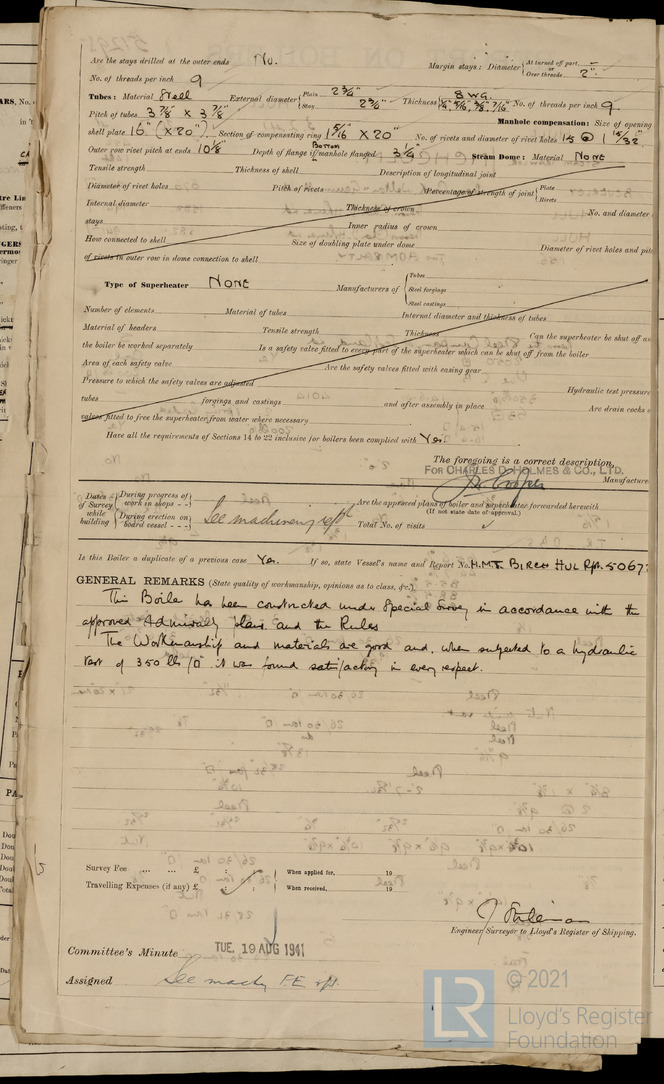 Are the stays drilled at the outer ends No. Margin stays: Diameter { At turned off part, or Over threads 2".
No. of threads per inch 9
Tubes: Material Steel External diameter { Plain 2 3/4" Stay 2 3/4" Thickness { 8 W.G. 1/4", 5/16", 3/8", 7/16" No. of threads per inch 9
Pitch of tubes 3 7/8 X 3 7/8" Manhole compensation: Size of opening
shell plate 16" (X 20") Section of compensating ring 1 5/16 X 20" No. of rivets and diameter of rivet holes @ 1 15/32"
Outer row rivet pitch at ends 10 1/8 Depth of flange if manhole flanged Bottom 3 1/4" Steam Dome: Material None
Tensile strength Thickness of shell Description of longitudinal joint
Diameter of rivet holes Pitch of rivets Percentage of strength of joint { Plate Rivets
Internal diameter Thickness of crown No. and diameter
stays Inner radius of crown
How connected to shell Size of doubling plate under dome Diameter of rivet holes and
of rivets in outer row in dome connection to shell
Type of Superheater None Manufacturers of { Tubes Steel forgings Steel castings
Number of elements Material of tubes Internal diameter and thickness of tubes
Material of headers Tensile strength Thickness Can the superheater be shut off
the boiler be worked separately Is a safety valve fitted to every part of the superheater which can be shut off from the boiler
Area of each safety valve Are the safety valves fitted with easing gear
Pressure to which the safety valves are adjusted Hydraulic test pressure
tubes forgings and castings and after assembly in place Are drain cocks
valves fitted to free the superheater from water where necessary
Have all the requirements of Sections 14 to 22 inclusive for boilers been complied with Yes
The foregoing is a correct description,
For CHARLES D. HOLMES & CO., LTD.
Manufacture
Dates of Survey while building { During progress of work in shops - - During erection on board vessel - - - } See machinery rpt
Are the approved plans of boiler and superheater forwarded herewith (If not state date of approval.)
Total No. of visits
Is this Boiler a duplicate of a previous case Yes. If so, state Vessel's name and Report No. H.M.T. BIRCH HUL Rpt. 5067
GENERAL REMARKS (State quality of workmanship, opinions as to class, &c.)
This Boiler has been constructed under Special Survey in accordance with the
approved Admiralty plans and the Rules
The Workmanship and materials are good and, when subjected to a hydraulic
test of 350 lbs/□" it was found satisfactory in every respect.
Survey Fee ... ... £ : : When applied for, 19
Travelling Expenses (if any) £ : : When received, 19
Engineer Surveyor to Lloyd's Register of Shipping.
Committee's Minute TUE. 19 AUG 1941
Assigned See machy F.E. rpt.
LR © 2021
Lloyd's Register
Foundation